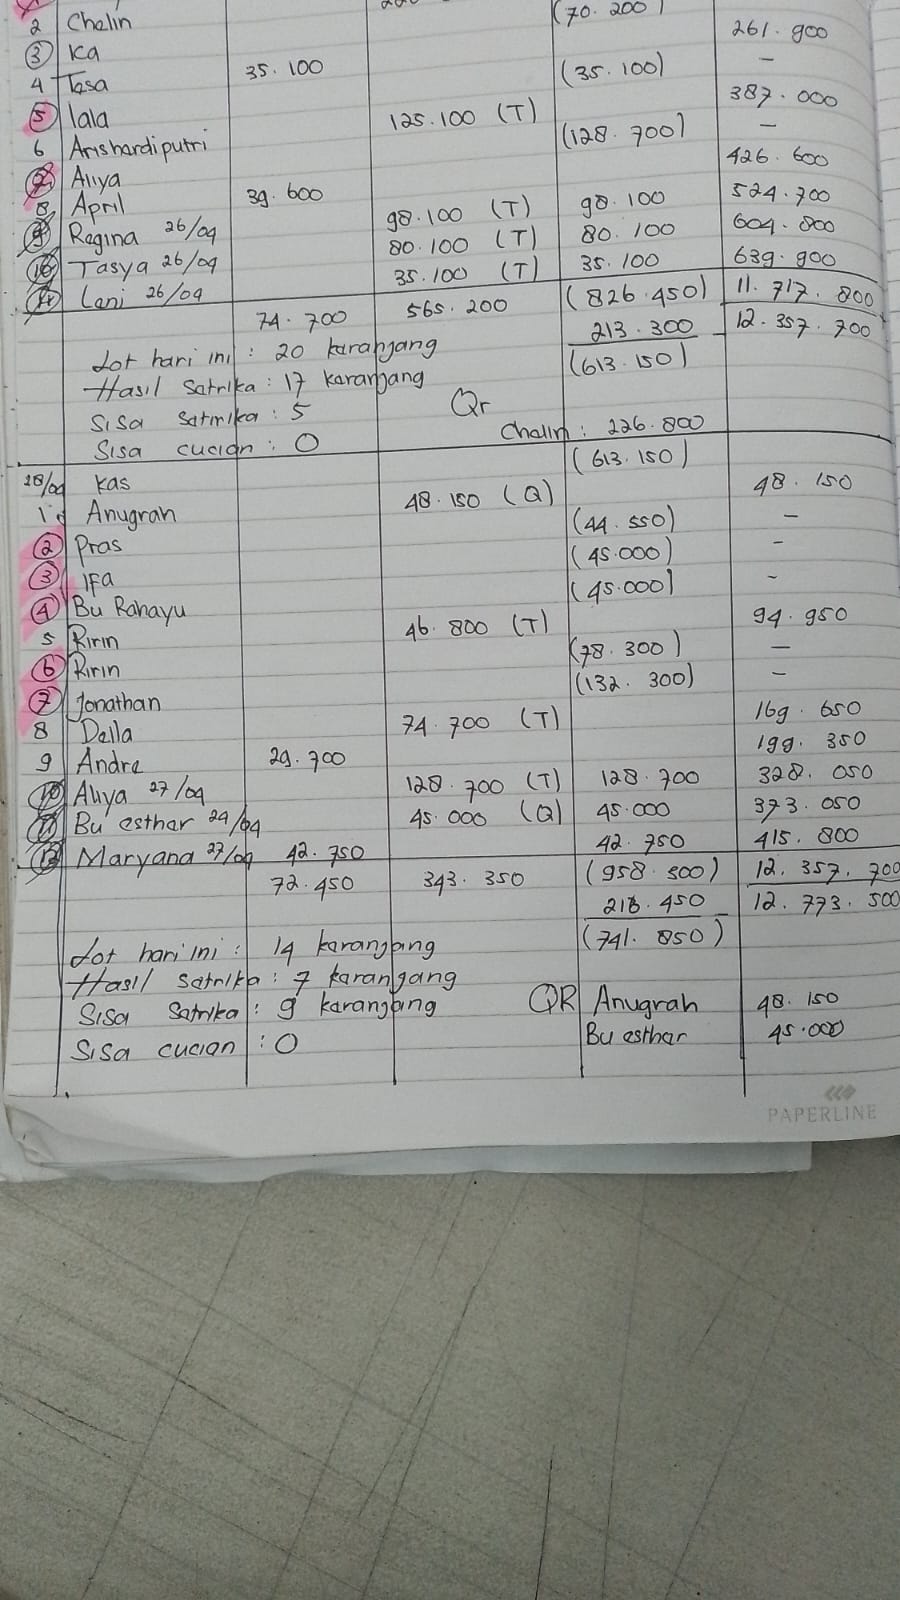 2 Chalin (70.200)
3 Ka 261.900
4 Tasa 35.100 (35.100) -
5 lala 125.100 (T) 387.000
6 Arishardiputri (128.700) -
7 Aliya 426.600
8 April 39.600 98.100 524.700
9 Regina 26/09 98.100 (T) 80.100 604.800
10 Tasya 26/09 80.100 (T) 35.100 639.900
11 Lani 26/09 35.100 (T) (826.450) 11.717.800
74.700 565.200 213.300 - 12.357.700
Lot hari ini : 20 karangang (613.150)
Hasil Satrika : 17 karangang
Sisa Satrika : 5 Qr
Sisa cucian : 0 Chalin : 226.800
28/09 kas (613.150)
1 Anugrah 48.150 (Q) 48.150
2 Pras (44.550) -
3 Ifa (45.000) -
4 Bu Rahayu (45.000) -
5 Ririn 46.800 (T) 94.950
6 Ririn (78.300) -
7 Jonathan (132.300) -
8 Della 74.700 (T) 169.650
9 Andre 29.700 199.350
10 Aliya 27/09 128.700 (T) 128.700 328.050
11 Bu esthar 29/09 45.000 (Q) 45.000 373.050
12 Maryana 27/09 42.750 42.750 415.800
72.450 343.350 (958.300) 12.357.700
216.450 - 12.773.500
Lot hari ini : 14 karangang (741.850)
Hasil Satrika : 7 karangang
Sisa Satrika : 9 karangang QR Anugrah 48.150
Sisa cucian : 0 Bu esthar 45.000
PAPERLINE